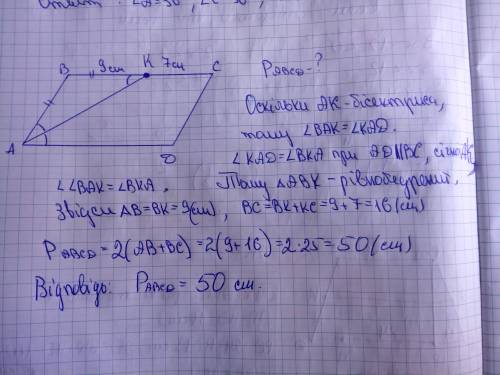 ∠A=50°, ∠C=50°,
B 9см K 7см C
A D
P ABCD - ?
Оскільки AK - бісектриса,
тому ∠BAK = ∠KAD.
∠KAD = ∠BKA при AD || BC, січна AK
∠ ∠BAK = ∠BKA. Тому △ABK - рівнобедрений.
Звідси AB = BK = 9(см), BC = BK + KC = 9 + 7 = 16 (см)
P ABCD = 2(AB + BC) = 2(9 + 16) = 2 · 25 = 50 (см)
Відповідь: P ABCD = 50 см.